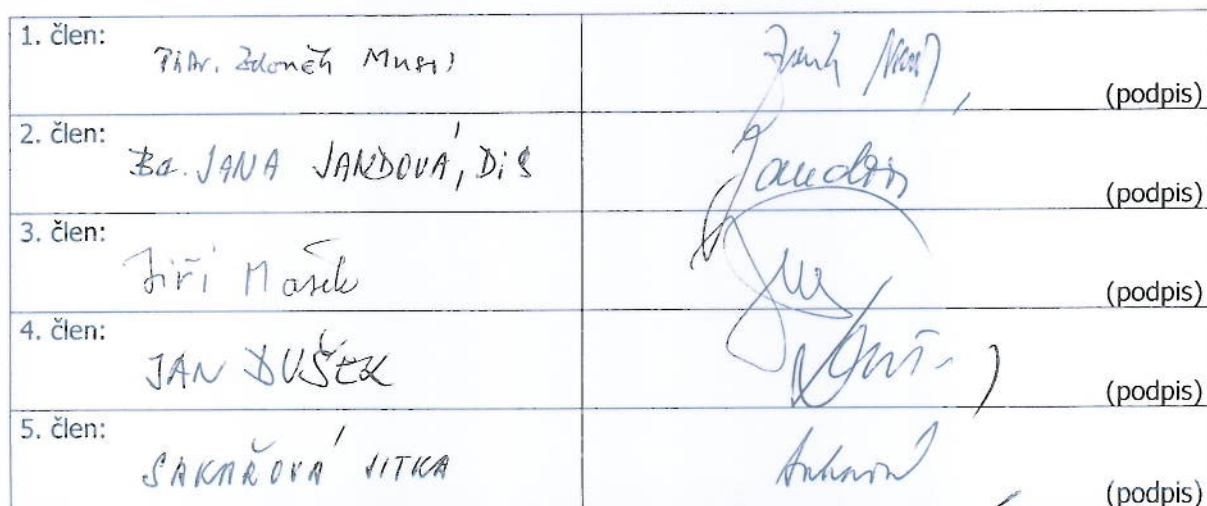 1. člen:
PhDr. Zdeněk Musil
(podpis)
2. člen:
Bc. JANA JANDOVÁ, DiS
(podpis)
3. člen:
Jiří Mašek
(podpis)
4. člen:
JAN DUŠEK
(podpis)
5. člen:
SAKAŘOVÁ JITKA
(podpis)